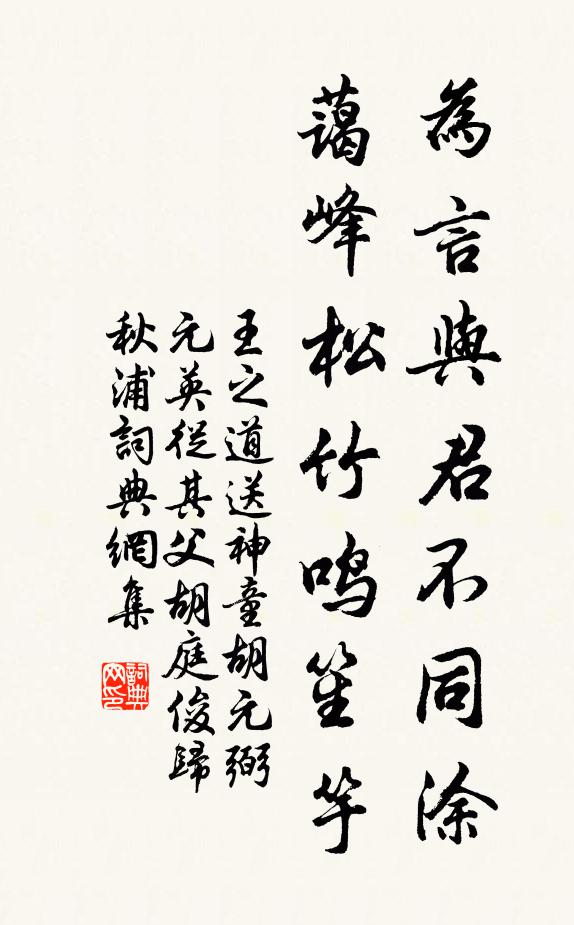 為言與君不同涂
藹峰松竹鳴笙竽
王之道送神童胡元弼
元英從其父胡庭俊歸
秋浦詞典網集
詞典
网印